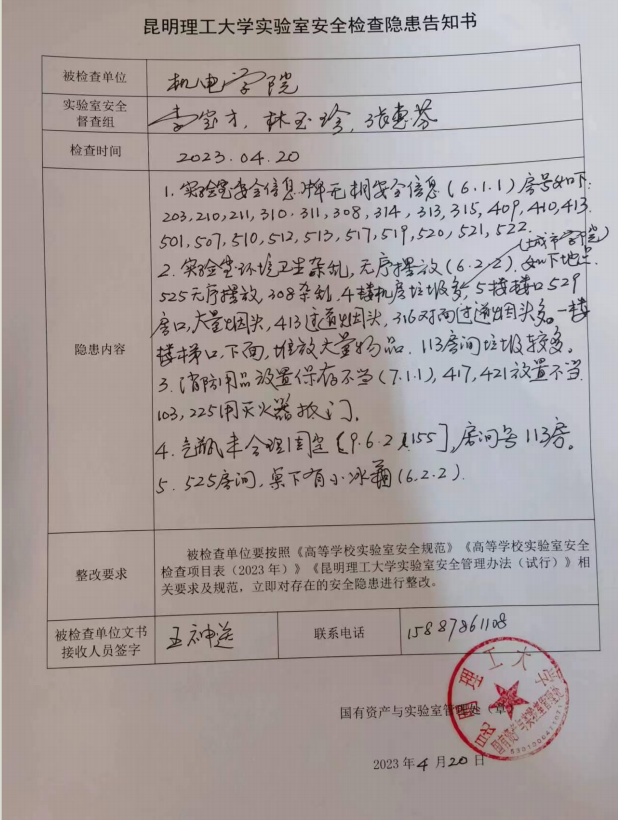 昆明理工大学实验室安全检查隐患告知书
被检查单位 机电学院
实验室安全督查组 李宝才, 林玉珍, 张惠芬
检查时间 2023.04.20
隐患内容
1. 实验室安全信息牌无相安全信息(6.1.1)房号如下:
203, 210, 211, 310. 311, 308, 314, 313, 315, 409, 410, 413.
501, 507, 510, 512, 513, 517, 519, 520, 521, 522.
(城市学院)
2. 实验室环境卫生杂乱, 无序摆放(6.2.2). 如下地点.
525无序摆放, 308杂乱, 4楼机房垃圾多, 5楼楼口529
房口, 大量烟头, 413过道烟头, 316对面过道烟头多。一楼
楼梯口, 下面, 堆放大量物品. 113房间垃圾较多。
3. 消防用品放置保存不当(7.1.1), 417, 421放置不当.
103, 225用灭火器抵门.
4. 气瓶未合理固定[9.6.2 155], 房间号113房。
5. 525房间, 桌下有小冰箱(6.2.2).
整改要求
被检查单位要按照《高等学校实验室安全规范》《高等学校实验室安全
检查项目表（2023年）》《昆明理工大学实验室安全管理办法（试行）》相
关要求及规范，立即对存在的安全隐患进行整改。
被检查单位文书接收人员签字 王 联系电话 15887861108
国有资产与实验室管理处（章）
2023年4月20日
昆明理工大学
国有资产与实验室管理处